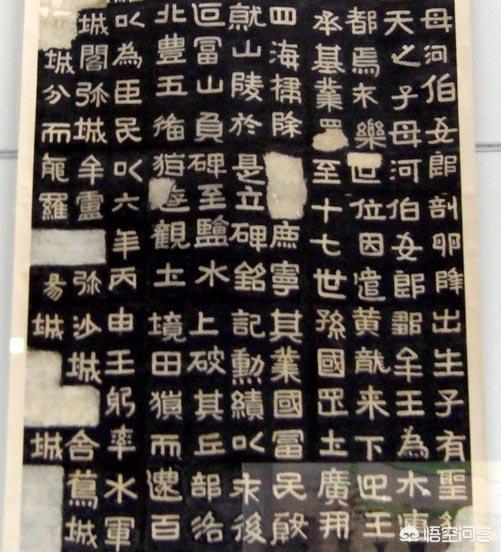 母河伯女郎剖卵降出生子有聖
天之子母河伯女郎鄒牟王為木
都焉不樂世位因遣黃龍來下迎王
承基業至十七世孫國罡上廣開
四海掃除庶寧其業國富民殷
就山陵於是立碑銘記勳績以永後
叵富山負碑至鹽水上破其丘部洛
北豊五備猶遊觀土境田獵而還百
以為臣民以六年丙申王躬率水軍
城閣弥城牟盧弥沙城舍蔦城
城分而龍羅昜城城
悟空问答